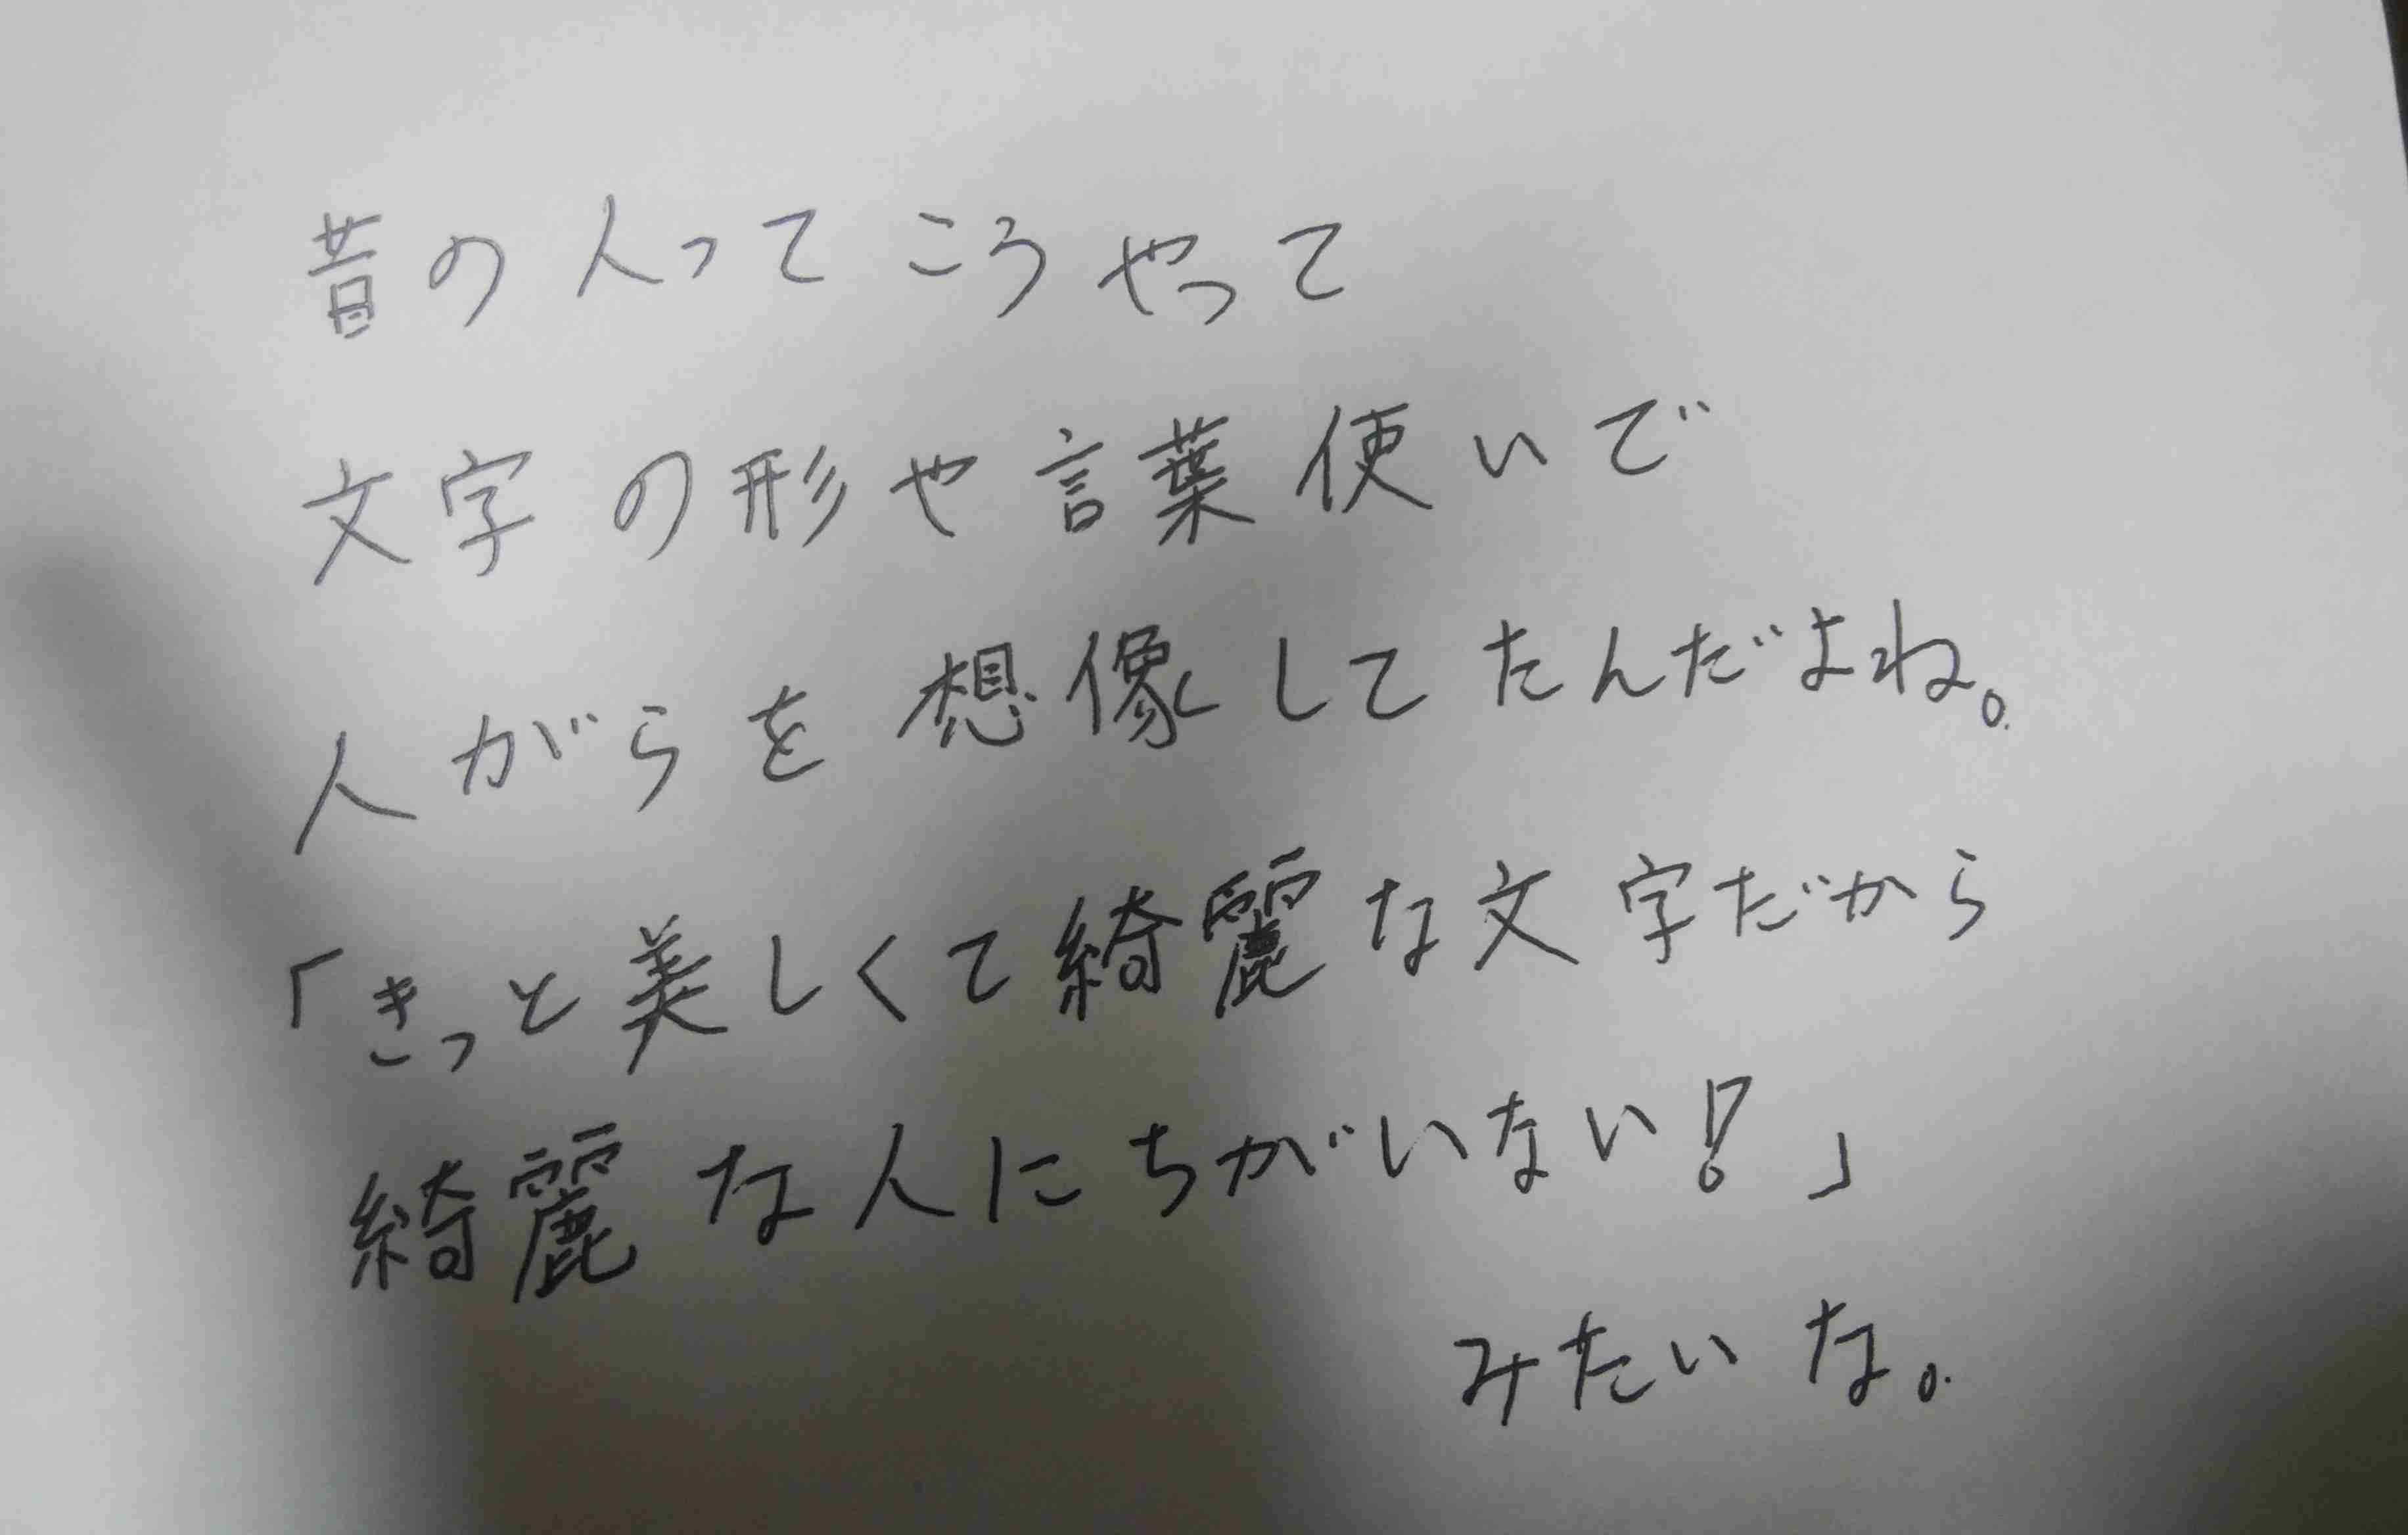 昔の人ってこうやって
文字の形や言葉使いで
人がらを想像してたんだよね。
「きっと美しくて綺麗な文字だから
綺麗な人にちがいない!」
みたいな。